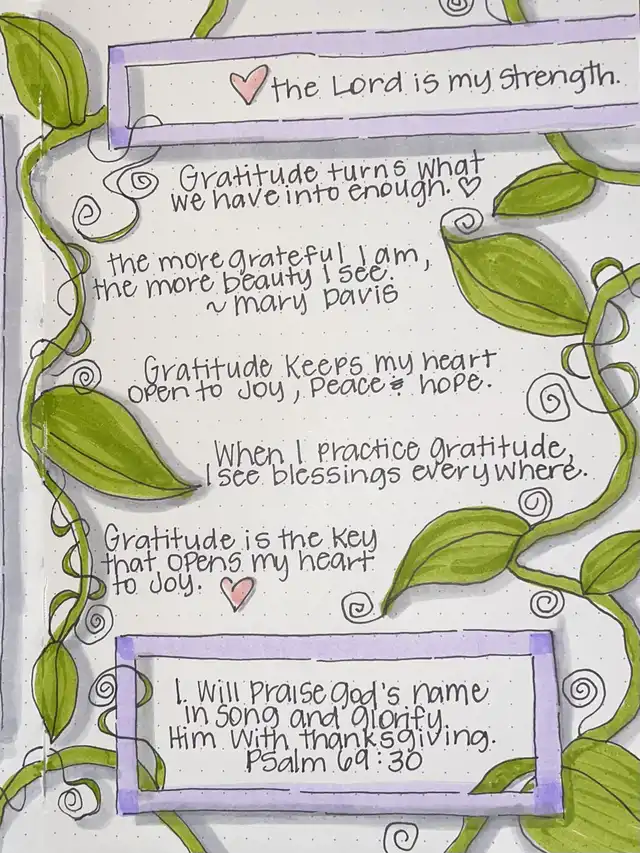 the Lord is my strength.
Gratitude turns what
we have into enough.
the more grateful I am,
the more beauty I see.
~ Mary Davis
Gratitude keeps my heart
open to joy, peace & hope.
When I practice gratitude,
I see blessings everywhere.
Gratitude is the key
that opens my heart
to joy.
I will praise God's name
in song and glorify
Him with thanksgiving.
Psalm 69:30